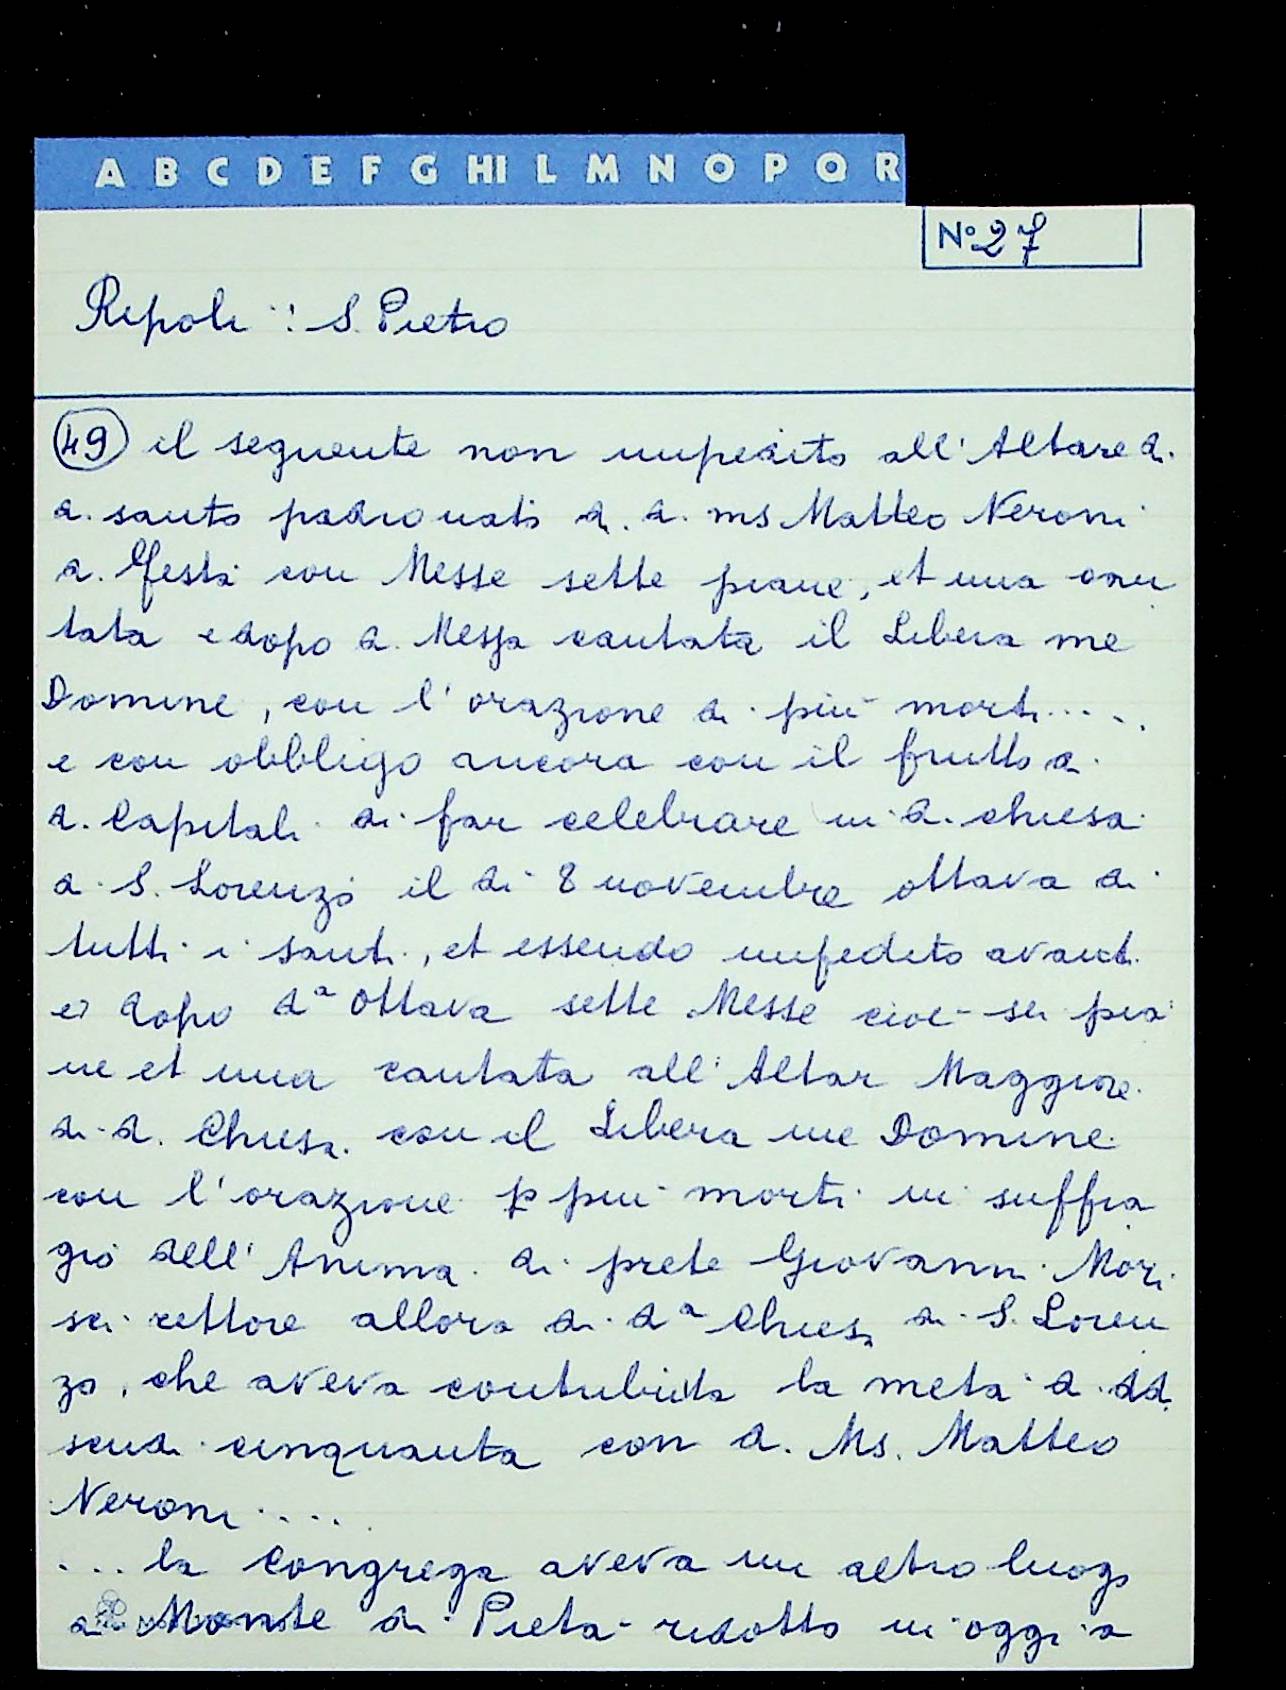 A B C D E F G HI L M N O P Q R
N° 27
Ripoli : S. Pietro
49 il seguente non impedito all'Altare di
d. santo padronato di d. ms Matteo Neroni
d. festa con Messe sette piane, et una can
tata e dopo d. Messa cantata il Libera me
Domine, con l'orazione di più morti.....
e con obbligo ancora con il frutto di
d. Capitali di far celebrare in d. chiesa
di S. Lorenzo il di 8 novembre ottava di
tutti i santi, et essendo impedito avanti
e dopo dª Ottava sette Messe cioè sei pia
ne et una cantata all'Altar Maggiore
di d. Chiesa con il Libera me Domine
con l'orazione p più morti in suffra
gio dell'Anima di prete Giovanni Mori
sei rettore allora di dª Chiesa di S. Loren
zo, che aveva contribuito la metà di dd.
scudi cinquanta con d. Ms. Matteo
Neroni.....
... la Congrega aveva un altro luogo
di Monte di Pietà ridotto in oggi a